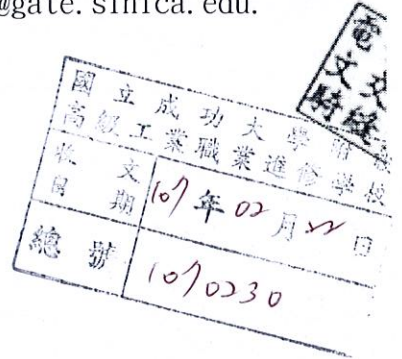 @gate.sinica.edu.
電文交
騎縫
國立成功大學附
高級工業職業進修學校
收文
日期 107年02月22日
總號 1070230